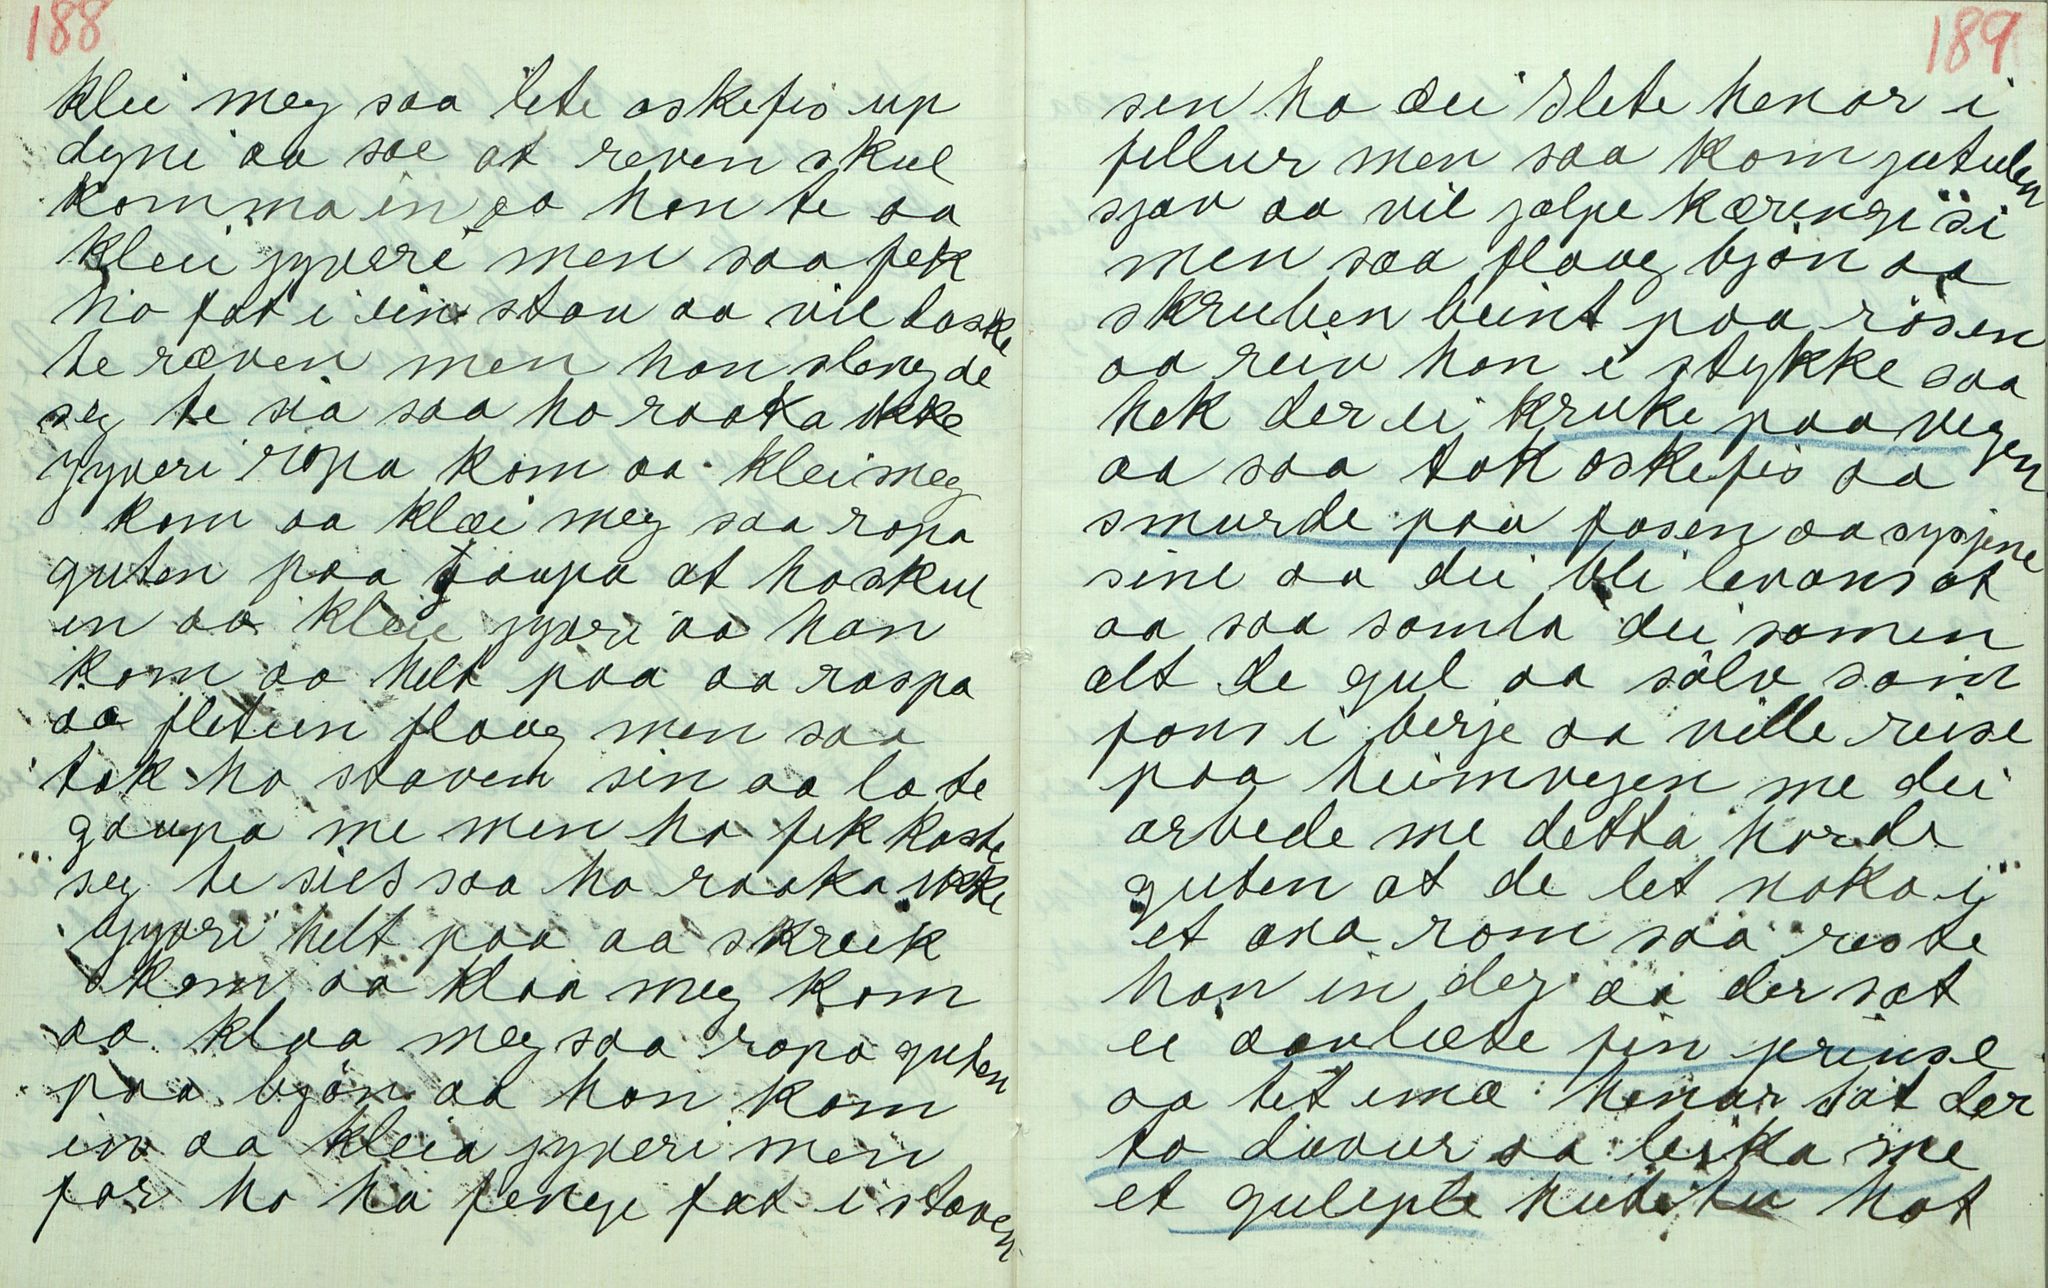 188
klei meg saa lete askefis up
dyni aa sae at reven skul
komma in aa han te aa
kleii jyveri men saa fek
ho fat i ein stav aa vil daske
te ræven men han slengde
seg te sia saa ho raaka ikke
jyveri ropa kom aa klei meg
kom aa klæi meg saa ropa
guten paa gaupa at ho skul
in aa kleie jyveri aa han
kom aa helt paa aa raspa
aa fletun flaug men saa
tok ho staven sin aa la te
gaupa me men ho fek kaste
seg te sies saa ho raaka ikke
jyveri helt paa aa skreek
kom aa klaa meg kom
aa klaa meg saa ropa guten
paa bjøn aa han kom
in aa kleia jyveri men
før ho ha fenge fat i staven
189
sen ha dei slete henar i
fillur men saa kom jutulen
sjav aa vil jelpe kærengi si
men saa flaug bjøn aa
skruben beint paa risen
aa reiv han i stykke saa
hek der ei kruke paa vegen
aa saa tok askefis aa
smurde paa fosen aa sysjene
sine aa dei blei levans at
aa saa samla dei samen
alt de gul aa sølv som
fans i berje aa ville reise
paa heimvegen me dei
arbede me detta hørde
guten at de let noko i
et ana rom saa reste
han in der aa der sat
ei aavlete fin prinse
aa tet imæ henar sat der
to duvur aa leika me
et guleple